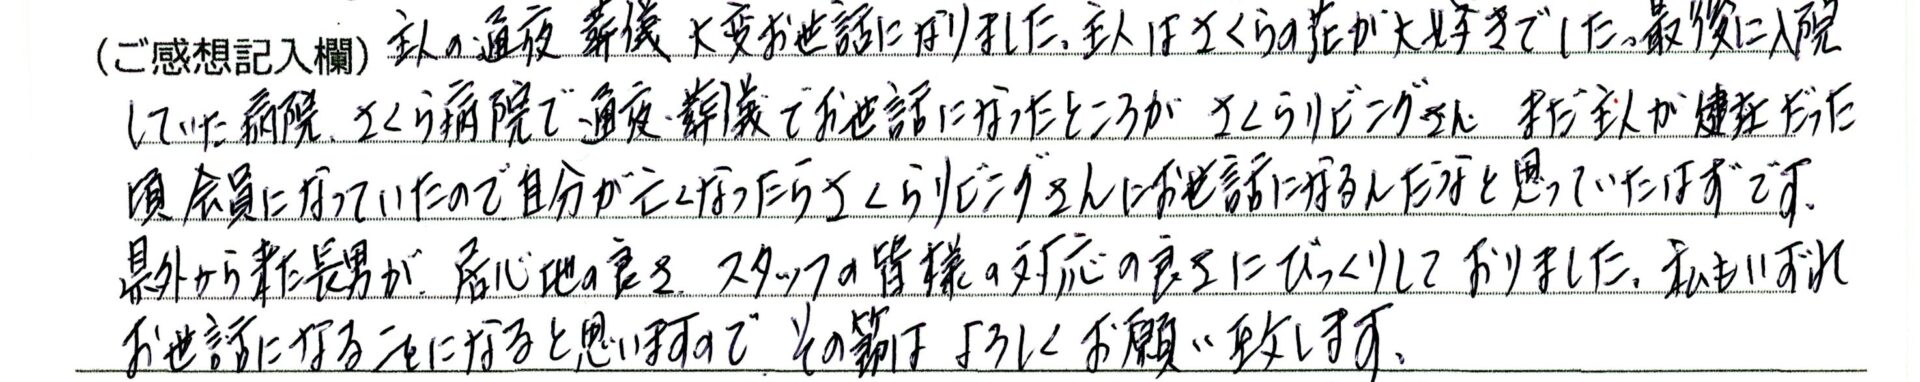 (ご感想記入欄) 主人の通夜 葬儀 大変お世話になりました。主人はさくらの花が大好きでした。最後に入院
していた病院、さくら病院で通夜・葬儀でお世話になったところが さくらリビングさん まだ主人が健在だった
頃 会員になっていたので自分が亡くなったらさくらリビングさんにお世話になるんだなと思っていたはずです。
県外から来た長男が、居心地の良さ、スタッフの皆様の対応の良さにびっくりしておりました。私もいずれ
お世話になることになると思いますので、その節は よろしくお願い致します。